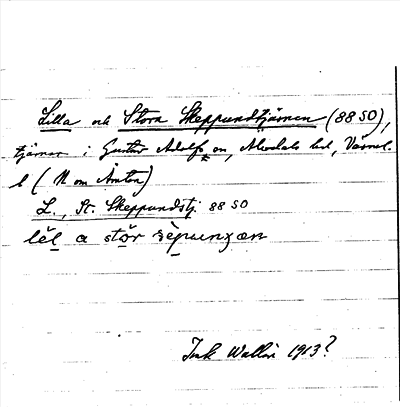 Lilla och Stora Skeppundtjärnen (88 SO),
tjärnar i Gustav Adolfs sn, Älvdals hd, Värml.
l (N om Åmten)
L., St. Skeppundstj. 88 SO
lel a stor
Wallin 1913?